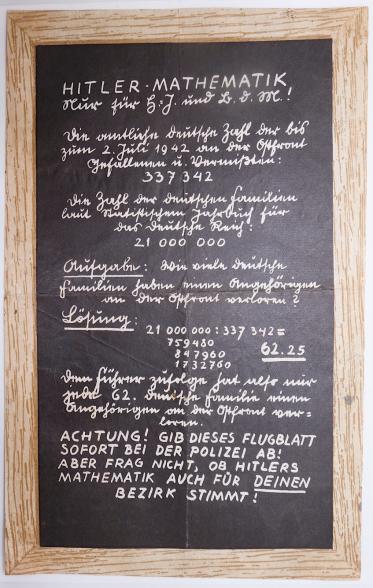 HITLER-MATHEMATIK
Nur für H.J. und B.d.M.!
Die amtliche deutsche Zahl der bis
zum 2. Juli 1942 an der Ostfront
Gefallenen u. Vermißten:
337 342
Die Zahl der deutschen Familien
laut Statistischem Jahrbuch für
das Deutsche Reich:
21 000 000
Aufgabe: Wie viele deutsche
Familien haben einen Angehörigen
an der Ostfront verloren?
Lösung:
21 000 000 : 337 342 =
759480
847960 62.25
1732760
Dem Führer zufolge hat also nur
jede 62. deutsche Familie einen
Angehörigen an der Ostfront ver-
loren.
ACHTUNG! GIB DIESES FLUGBLATT
SOFORT BEI DER POLIZEI AB!
ABER FRAG NICHT, OB HITLERS
MATHEMATIK AUCH FÜR DEINEN
BEZIRK STIMMT!